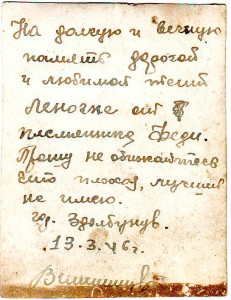 На долгую и вечную
память дорогой
и любимой тети
Леночке от
племянника Феди.
Прошу не обижайтесь
что плохая, лучшей
не имею.
гр. Здолбунув.
13.3.46г.